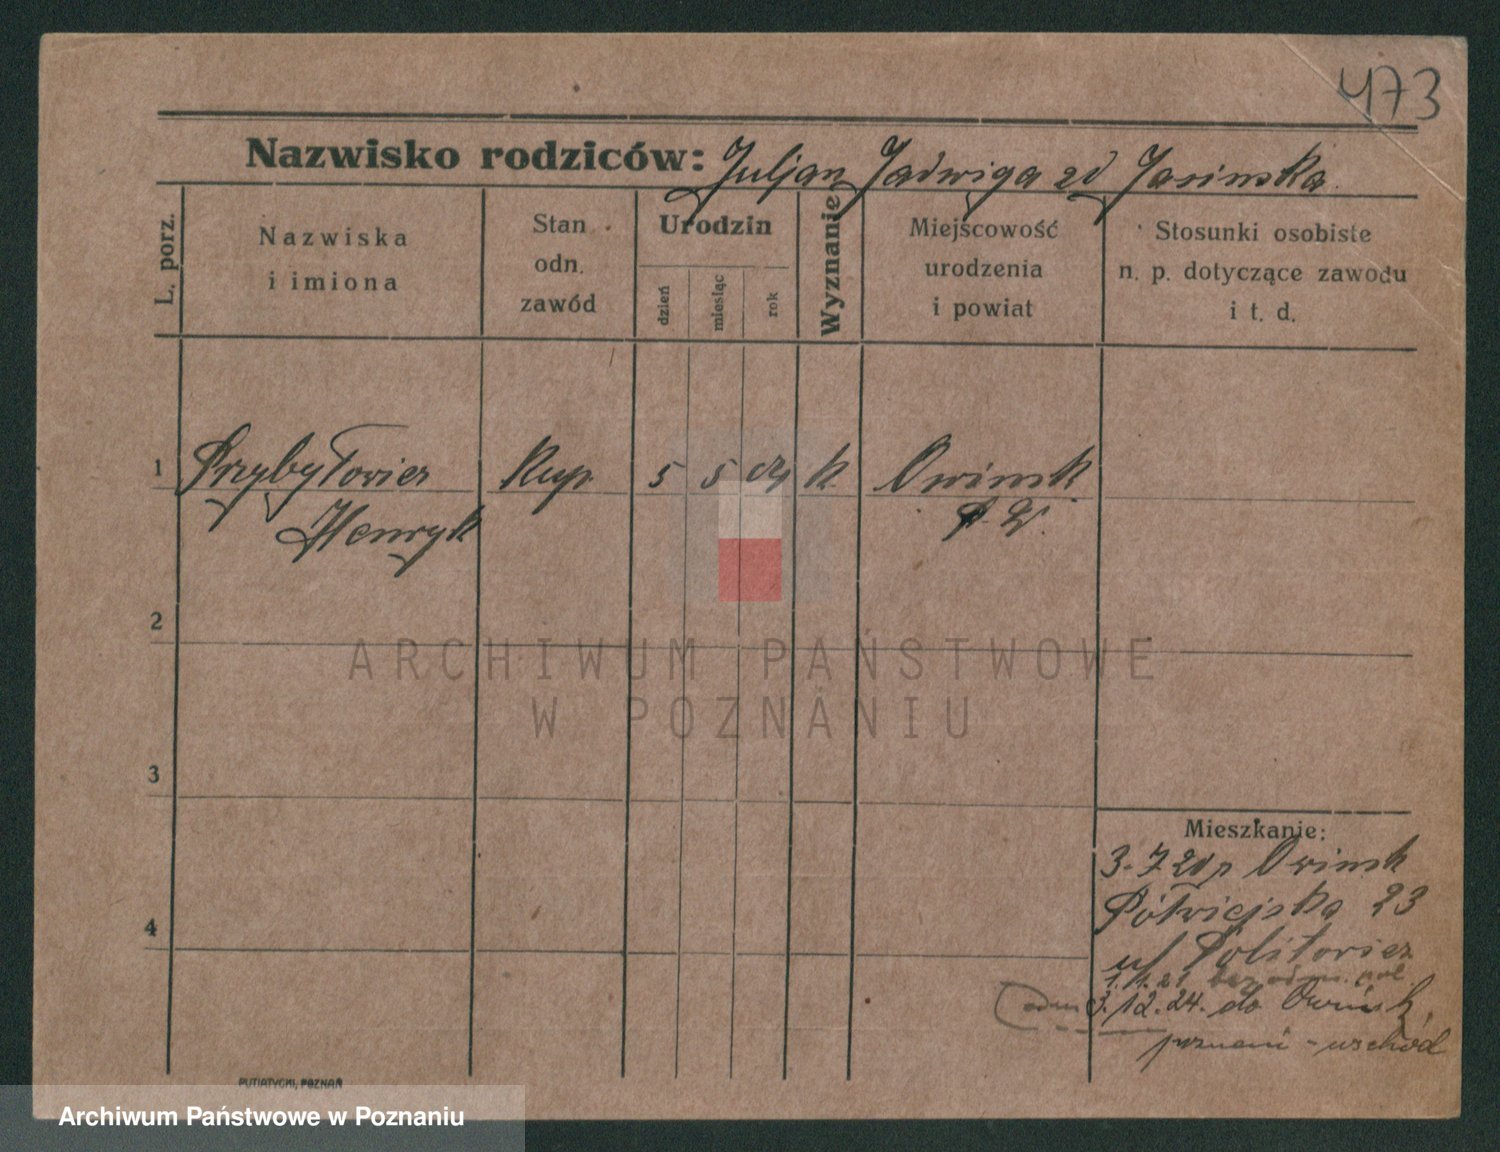 473
Nazwisko rodziców: Juljan Jadwiga zd Jasinska
L. porz.
Nazwiska
i imiona
Stan
odn.
zawód
Urodzin
dzień
miesiąc
rok
Wyznanie
Miejscowość
urodzenia
i powiat
Stosunki osobiste
n. p. dotyczące zawodu
i t. d.
1 Przybyłowicz Kup. 5 5 04 k Owinsk
Henryk P. W.
2
ARCHIWUM PAŃSTWOWE
W POZNANIU
3
Mieszkanie:
3-7 20 p Owinsk
Półwiejska 23
4
u/
1.4.21 bez odm. pol.
odm 3.12.24. do Owińsk,
poznań - wschód
PUTIATYCKI, POZNAŃ
Archiwum Państwowe w Poznaniu